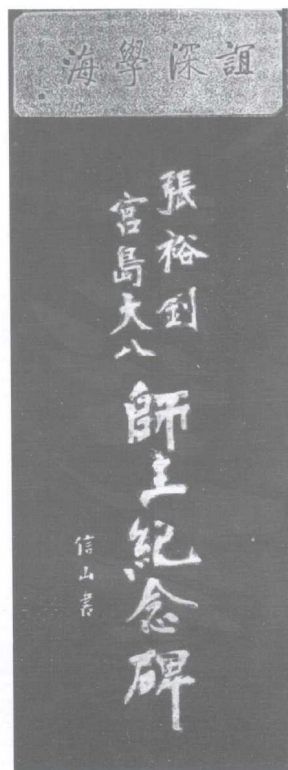 誼深學海
張裕釗
宮島大八
師生紀念碑
信山書